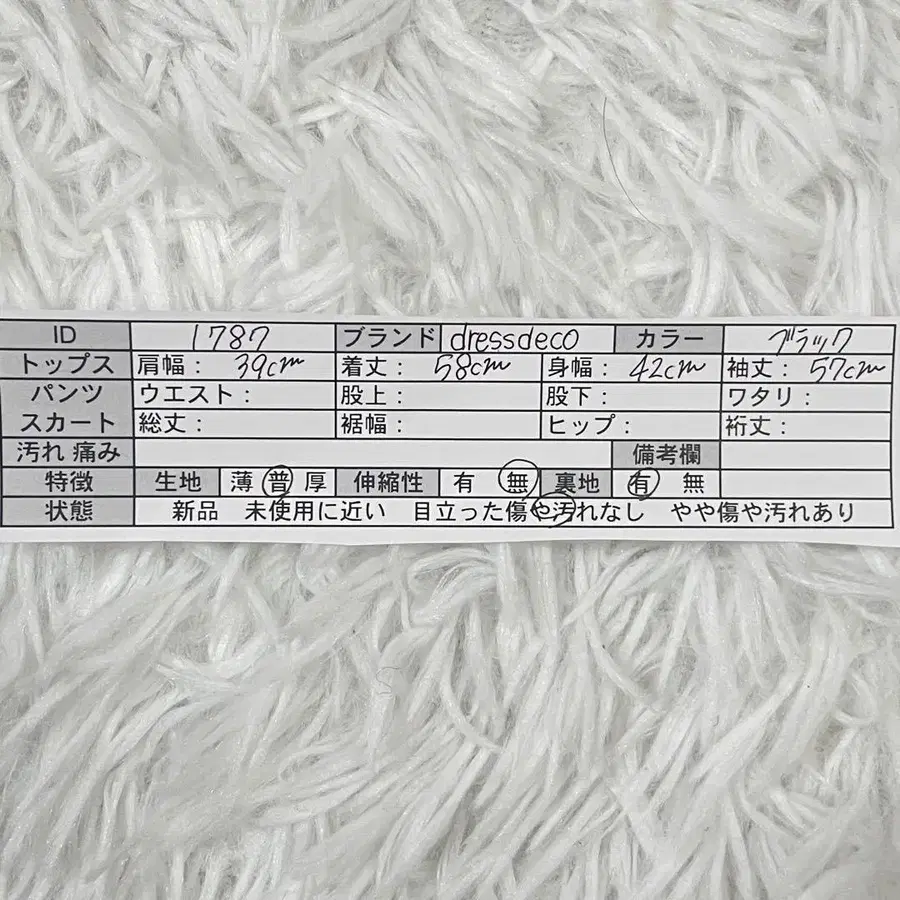 ID 1787 ブランド dressdeco カラー ブラック
トップス 肩幅： 39cm 着丈： 58cm 身幅： 42cm 袖丈： 57cm
パンツ ウエスト： 股上： 股下： ワタリ：
スカート 総丈： 裾幅： ヒップ： 裄丈：
汚れ 痛み 備考欄
特徴 生地 薄 普 厚 伸縮性 有 無 裏地 有 無
状態 新品 未使用に近い 目立った傷や汚れなし やや傷や汚れあり